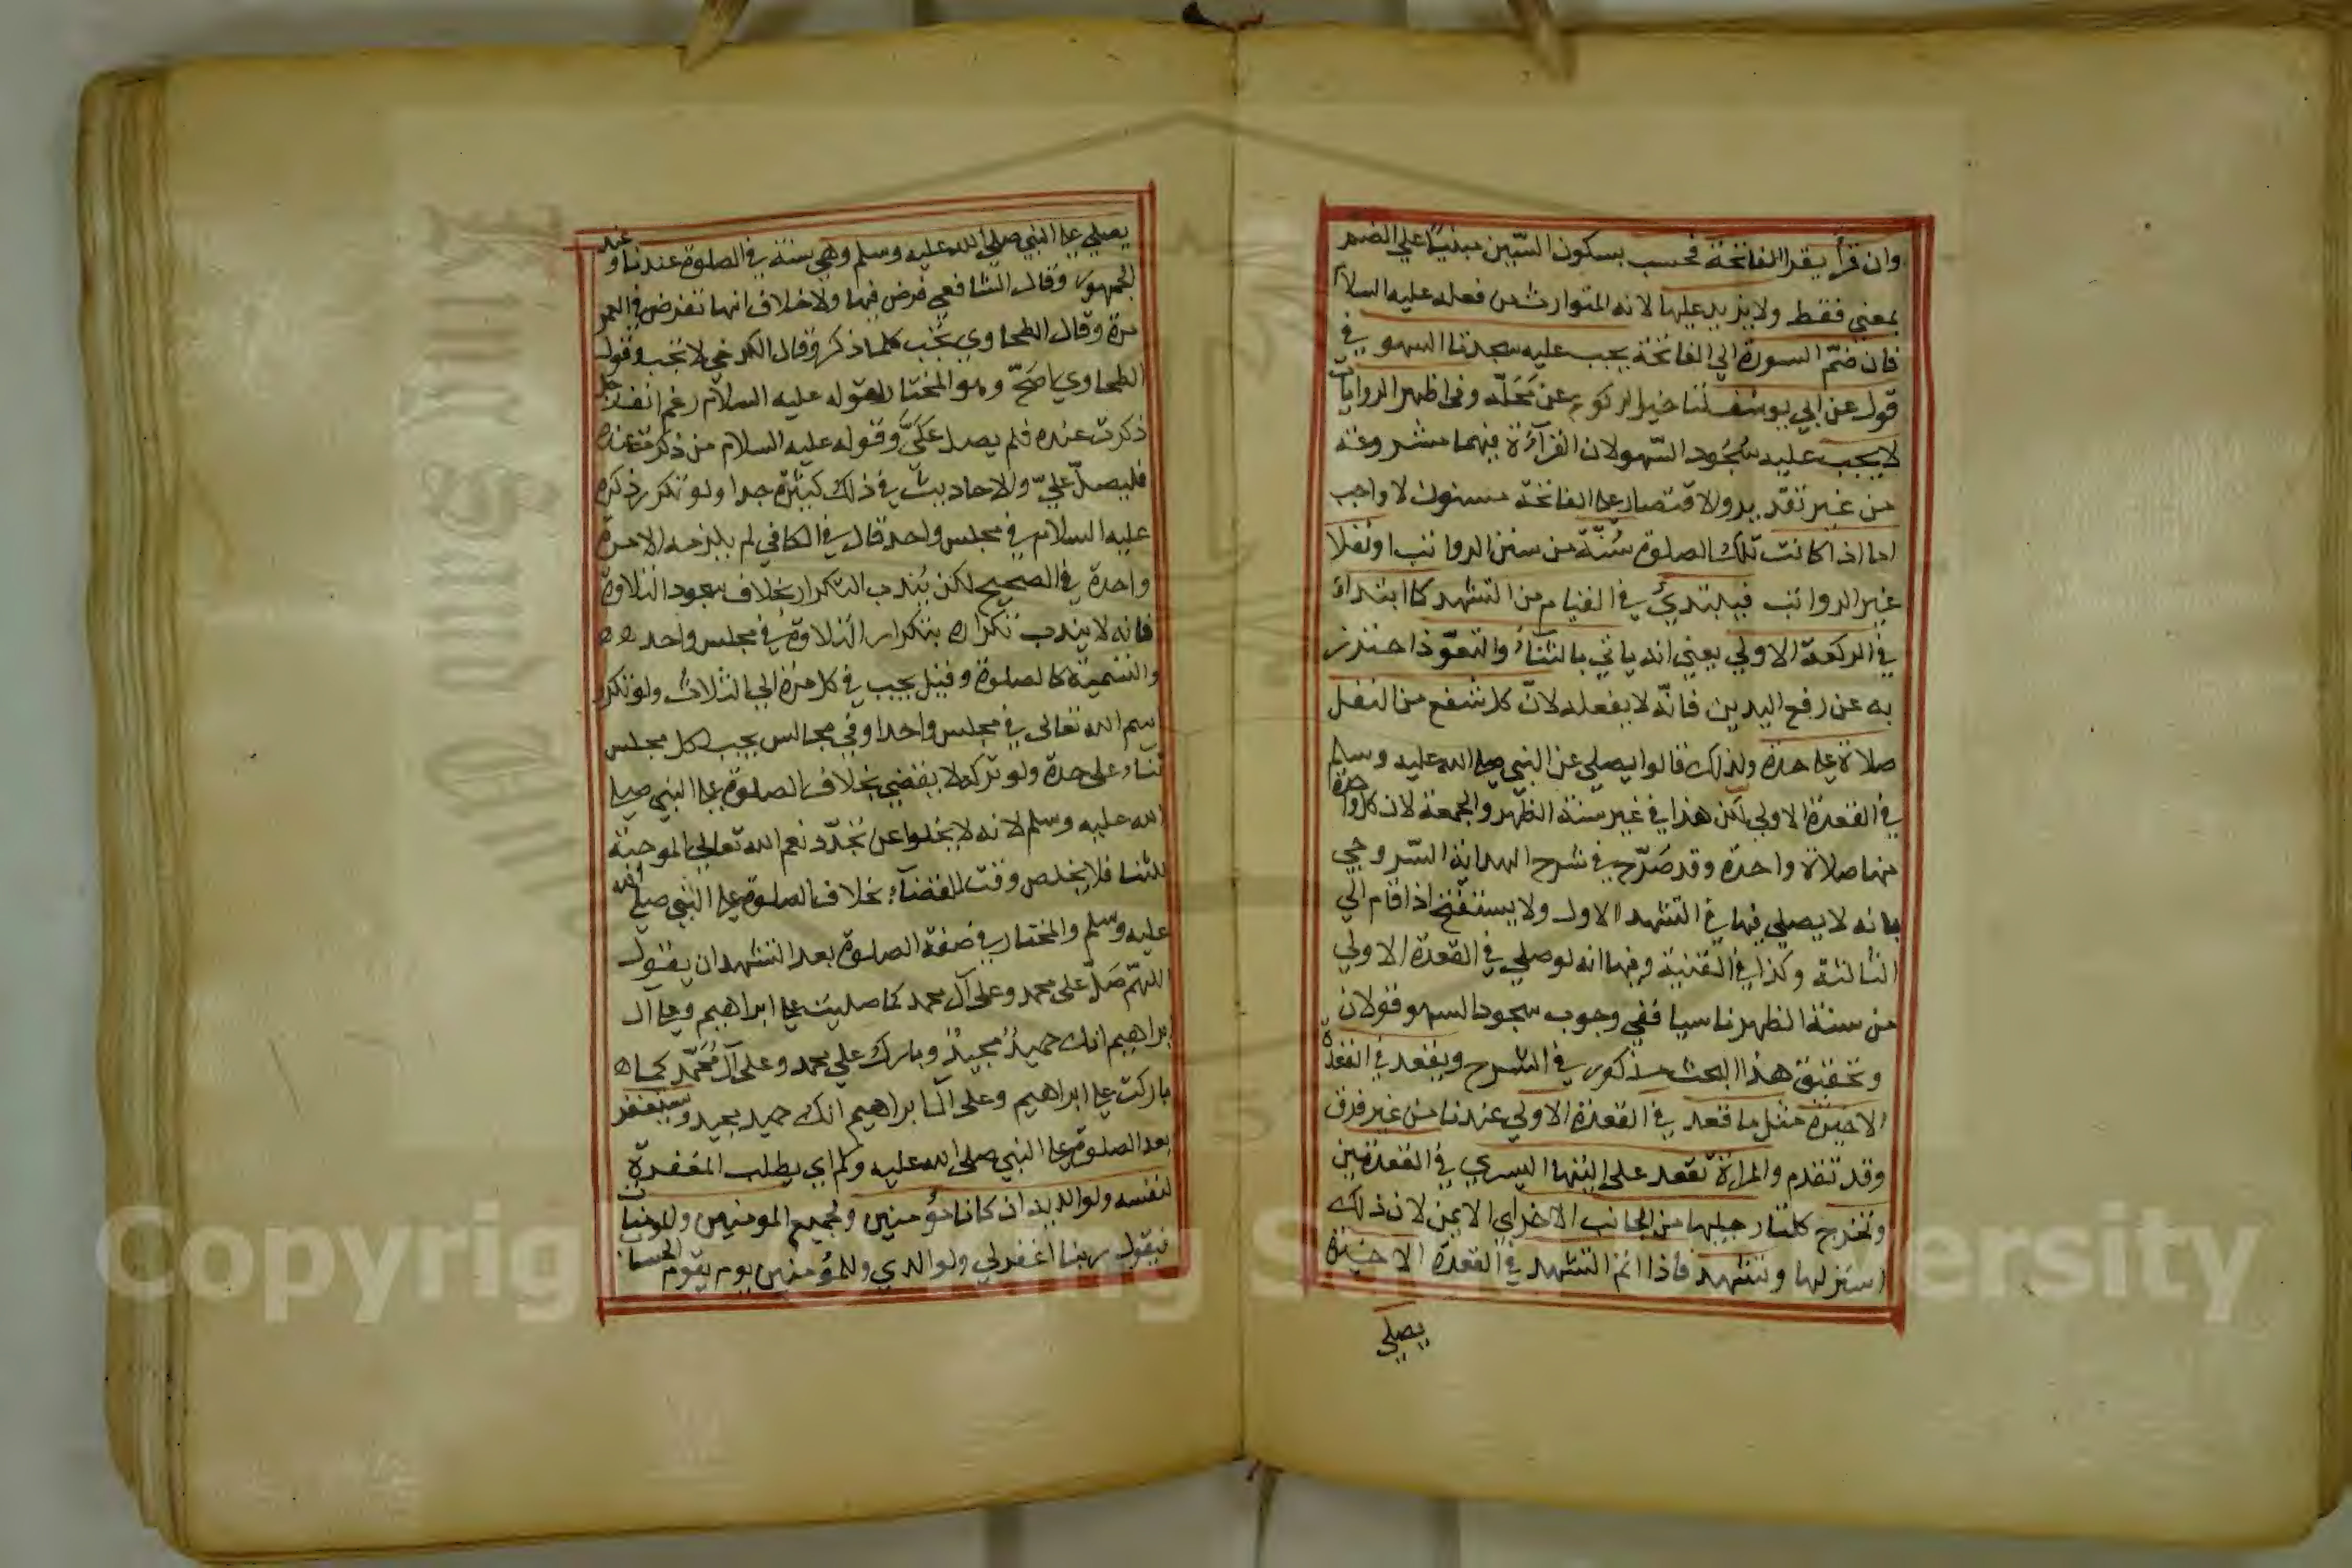 وان قرأ يقرأ الفاتحة فحسب بسكون السّين مبنيّا علي الضم
بمعني فقط ولا يزيد عليها لانه المتوارث من فعله عليه السلام
فان ضمّ السورة الي الفاتحة يجب عليه سجدتا السهو في
قول عن ابي يوسف لتاخير الركوع عن محَلّه وفي اظهر الروايات
لا يجب عليه سُجُود السّهو لان القرآءة فيهما مشروعة
من غير تقدير والاقتصار علي الفاتحة مسنون لا واجب
اما اذا كانت تلك الصلوة سُنّة من سنن الرواتب او نفلا
غير الرواتب فيبتدئُ في القيام من التشهد كما ابتداء
في الركعة الاولي يعني انه ياتي بالثناء والتعوّذ احترز
به عن رفع اليدين فانّه لا يفعله لانّ كل شفع من النفل
صلاة علي حدة ولذلك قالوا يصلي عن النبي صلي الله عليه وسلم
في القعدة الاولي لكن هذا في غير سنة الظهر والجمعة لان كل واحدة
منها صلاة واحدة وقد صَرّح في شرح الهداية السّروجي
بانه لا يصلي فيها في التشهد الاول ولا يستفتح اذا قام الي
الثالثة وكذا في القنية وفيها انه لو صلي في القعدة الاولي
من سنة الظهر ناسيا ففي وجوب سجود السهو قولان
وتحقيق هذا البحث مذكور في الشرح ويقعد في القعدة
الاخيرة مثل ما قعد في القعدة الاولي عندنا من غير فرق
وقد تقدم والمراة تقعد علي اليتها اليسري في القعدتين
وتخرج كلتا رجليها من الجانب الاخر اي الايمن لان ذلك
استر لها وتتشهد فاذا اتم التشهد في القعدة الاخيرة
يصلي
يصلي علي النبي صلي الله عليه وسلم وهي سنة في الصلوة عندنا وعند
الجمهور وقال الشافعي فرض فيها ولا خلاف انها تفرض في العمر
مرة وقال الطحاوي يجب كلما ذكر وقال الكرخي لا تجب وقول
الطحاوي اصَحّ وهو المختار لقوله عليه السلام رغم انف رجل
ذكرت عنده فلم يصل عَلَيَّ وقوله عليه السلام من ذكرت عنده
فليصلّ عليّ والاحاديث في ذلك كثيرة جدا ولو تكرر ذكره
عليه السلام في مجلس واحد قال في الكافي لم يلزمه الا مرة
واحدة في الصحيح لكن يُندب التكرار بخلاف سجود التلاوة
فانه لا يندب تكراره بتكرار التلاوة في مجلس واحد ه ه
والتسمية كالصلوة وقيل يجب في كل مرة الي الثلاث ولو تكرر
اسم الله تعالى في مجلس واحد او في مجالس يجب لكل مجلس
ثناء على حدة ولو تركه لا يقضي بخلاف الصلوة علي النبي صلي
الله عليه وسلم لانه لا يخلوا عن تجدّد نعم الله تعالي الموجبة
للثنا فلا يخلص وقت للقضآء بخلاف الصلوة علي النبي صلي الله
عليه وسلم والمختار في صفة الصلوة بعد التشهد ان يقول
اللهمّ صَلّ على محمد وعلى آل محمد كما صليت علي ابراهيم وعلي ال
ابراهيم انك حميدٌ مجيدٌ وبارك علي محمد وعلى آل مُحَمّد كما ه
باركت علي ابراهيم وعلى ال ابراهيم انك حميد مجيد ويستغفر
بعد الصلوة علي النبي صلى الله عليه وسلم اي يطلب المغفرة
لنفسه ولوالديه ان كانا مؤمنين ولجميع المومنين والمومنات
فيقول ربنا اغفر لي ولوالدي وللمؤمنين يوم يقوم الحساب